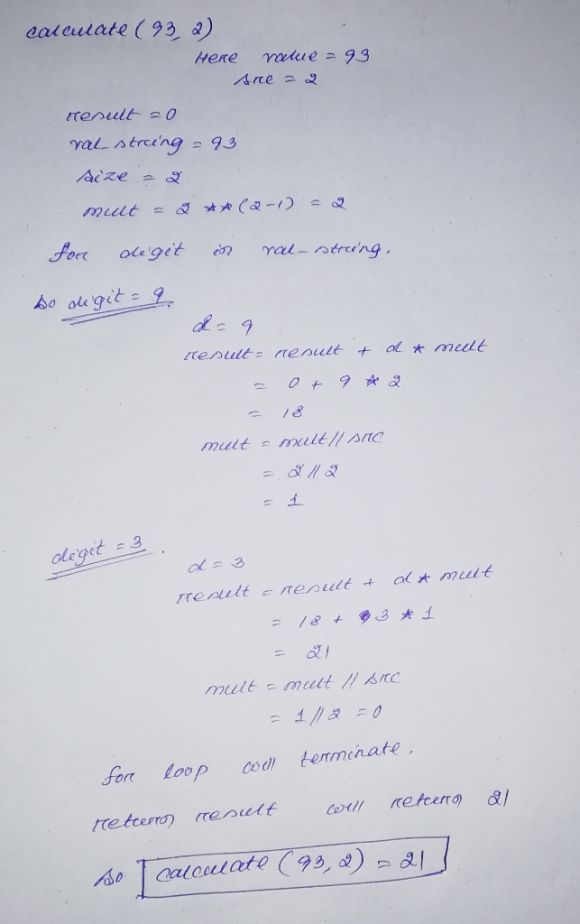 calculate (93, 2)
Here value = 93
src = 2
result = 0
val_string = 93
size = 2
mult = 2 ** (2-1) = 2
for digit in val-string.
so digit = 9.
d = 9
result = result + d * mult
= 0 + 9 * 2
= 18
mult = mult // src
= 2 // 2
= 1
digit = 3.
d = 3
result = result + d * mult
= 18 + 3 * 1
= 21
mult = mult // src
= 1 // 2 = 0
for loop will terminate.
return result will return 21
so calculate (93, 2) = 21